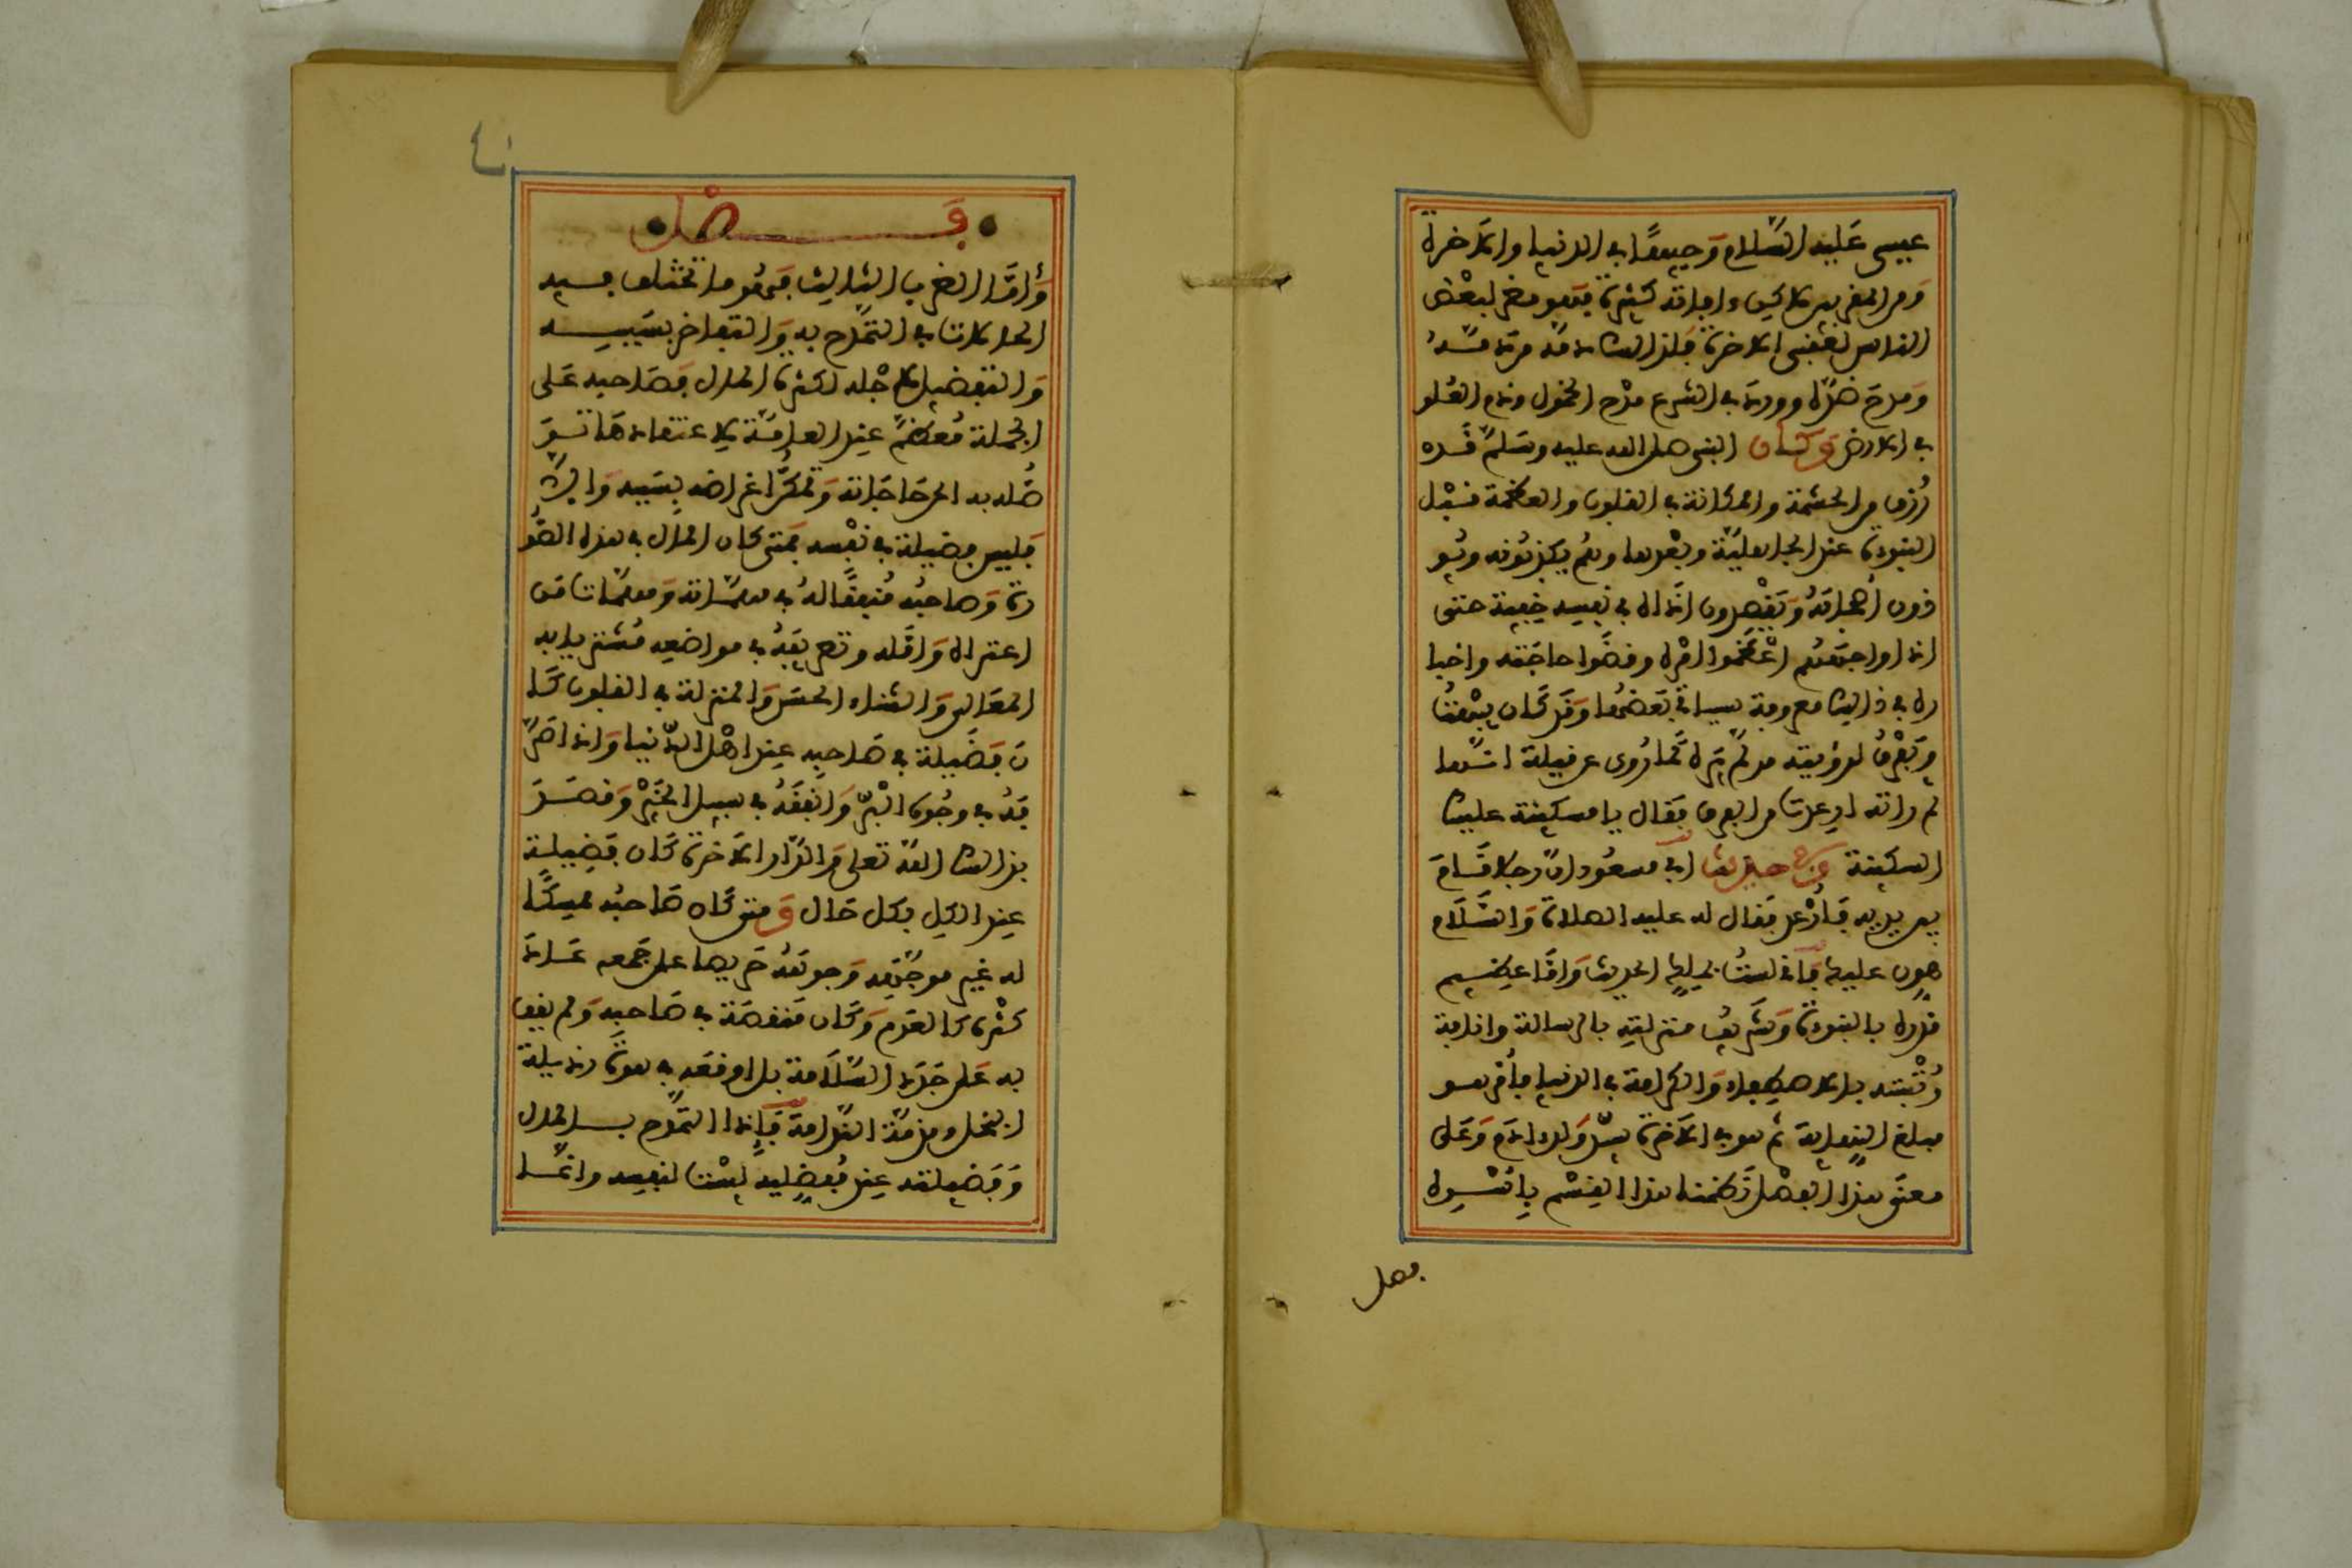 عيسى عليه السلام وجيها في الدنيا والاخرة
ومن المقربين لاكن ءافاته كثيرة فهو مضر لبعض
الناس لعقبى الاخرة فلذالك ذمه من ذمه
ومدح ضده وورد في الشرع مدح الخمول وذم العلو
في الارض وكان النبي صلى الله عليه وسلم قد
رزق من الحشمة والمكانة في القلوب والعظمة قبل
النبوءة عند الجاهلية وبعدها وهم يكذبونه ويو
ذون أصحابه ويقصدون اذاه في نفسه خفية حتى
اذا واجههم اعظموا امره وقضوا حاجته واخبا
ره في ذالك معروفة سياتي بعضها وقد كان يبهت
ويفرق لرؤيته من لم يره كما روي عن قيلة انها
لما راته ارعدت من الفرق فقال يا مسكينة عليك
السكينة وفي حديث ابي مسعود ان رجلا قام
بين يديه فأرعد فقال له عليه الصلاة والسلام
هون عليك فاني لست بملك الحديث واما عظيم
قدره بالنبوءة وشريف منزلته بالرسالة وانافة
رتبته بالاصطفاء والكرامة في الدنيا فأمر هو
مبلغ النهاية ثم هو في الاخرة سيد ولد ءادم وعلى
معنى هذا الفصل نظمنا هذا القسم بأسره
فصل
فصل
وأما الضرب الثالث فهو ما تختلف فيه
الحالات في التمدح به والتفاخر بسببه
والتفضيل لاجله ككثرة المال فصاحبه على
الجملة معظم عند العامة لاعتقادها تو
صله به الى حاجاته وتمكن اغراضه بسببه والا
فليس فضيلة في نفسه فمتى كان المال بهذه الصو
رة وصاحبه منفقا له في مهماته ومهمات من
اعتراه وامله وتصريفه في مواضعه مشتريا به
المعالي والثناء الحسن والمنزلة في القلوب كا
ن فضيلة في صاحبه عند اهل الدنيا واذا صر
فه في وجوه البر وانفقه في سبيل الخير وقصد
بذالك الله تعلى والدار الاخرة كان فضيلة
عند الكل بكل حال ومتى كان صاحبه ممسكا
له غير موجهه وجوهه حريصا على جمعه عاد
كثره كالعدم وكان منقصة في صاحبه ولم يقف
به على جدد السلامة بل اوقعه في هوة رذيلة
البخل ومذمة النذالة فإذا التمدح بالمال
وفضيلته عند مفضليه ليست لنفسه وانما